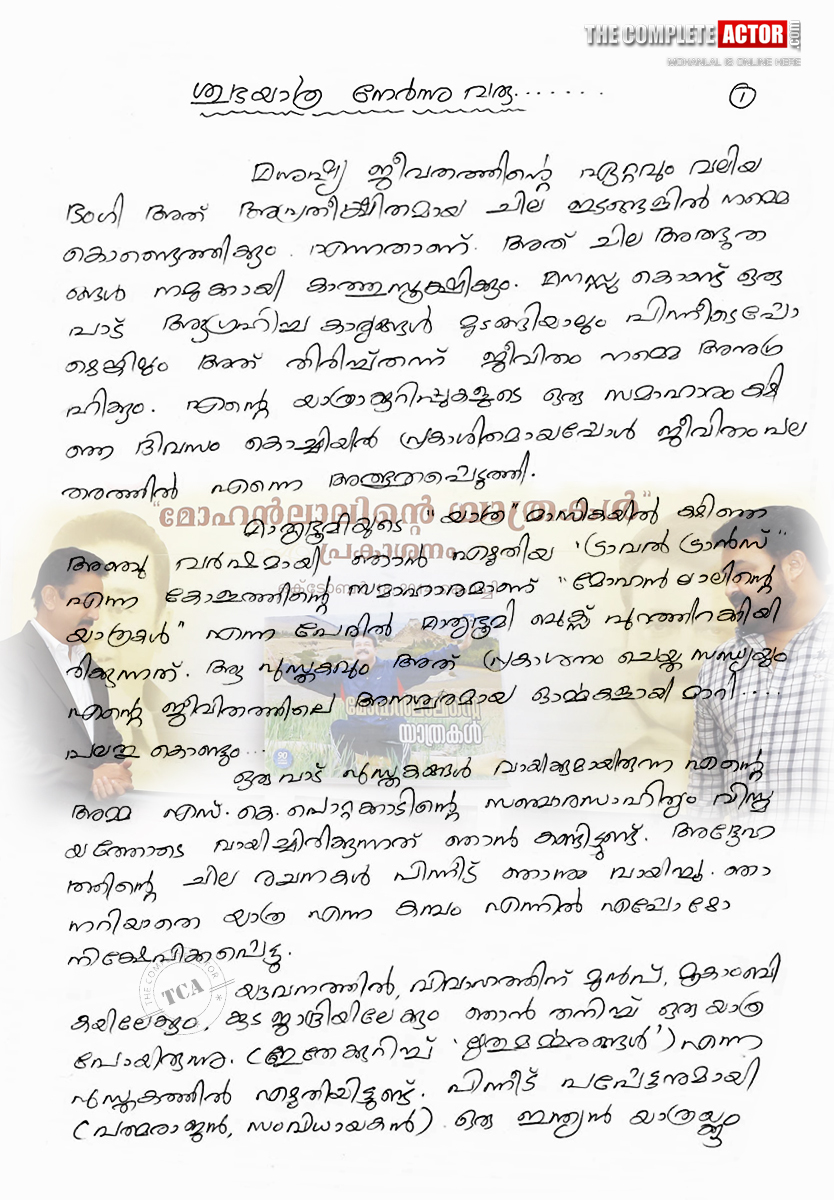 THE COMPLETE ACTOR .com
MOHANLAL IS ONLINE HERE
ശുഭയാത്ര നേർന്നു വരൂ.......
1
മനുഷ്യ ജീവതത്തിന്റെ ഏറ്റവും വലിയ
ഭംഗി അത് അപ്രതീക്ഷിതമായ ചില ഇടങ്ങളിൽ നമ്മെ
കൊണ്ടെത്തിക്കും എന്നതാണ്. അത് ചില അത്ഭുത
ങ്ങൾ നമുക്കായി കാത്തുസൂക്ഷിക്കും. മനസ്സു കൊണ്ട് ഒരു
പാട് ആഗ്രഹിച്ച കാര്യങ്ങൾ മുടങ്ങിയാലും പിന്നീടെപ്പോ
ഴെങ്കിലും അത് തിരിച്ച്തന്ന് ജീവിതം നമ്മെ അനുഗ്ര
ഹിക്കും. എന്റെ യാത്രാക്കുറിപ്പുകളുടെ ഒരു സമാഹാരം കഴി
ഞ്ഞ ദിവസം കൊച്ചിയിൽ പ്രകാശിതമായപ്പോൾ ജീവിതം പല
തരത്തിൽ എന്നെ അത്ഭുതപ്പെടുത്തി.
"മോഹൻലാലിന്റെ യാത്രകൾ"
പ്രകാശനം
മാതൃഭൂമിയുടെ "യാത്ര" മാസികയിൽ കഴിഞ്ഞ
അഞ്ചു വർഷമായി ഞാൻ എഴുതിയ 'ട്രാവൽ ട്രാൻസ്'
എന്ന കോളത്തിന്റെ സമാഹാരമാണ് "മോഹൻലാലിന്റെ
യാത്രകൾ" എന്ന പേരിൽ മാതൃഭൂമി ബുക്സ് പുറത്തിറക്കിയി
രിക്കുന്നത്. ആ പുസ്തകവും അത് പ്രകാശനം ചെയ്ത സന്ധ്യയും
എന്റെ ജീവിതത്തിലെ അനശ്വരമായ ഓർമ്മകളായി മാറി....
മോഹൻലാലിന്റെ
യാത്രകൾ
പലതു കൊണ്ടും...
ഒരുപാട് പുസ്തകങ്ങൾ വായിക്കുമായിരുന്ന എന്റെ
അമ്മ എസ്. കെ. പൊറ്റക്കാടിന്റെ സഞ്ചാരസാഹിത്യം വിസ്മ
യത്തോടെ വായിച്ചിരിക്കുന്നത് ഞാൻ കണ്ടിട്ടുണ്ട്. അദ്ദേഹ
ത്തിന്റെ ചില രചനകൾ പിന്നീട് ഞാനും വായിച്ചു. ഞാ
നറിയാതെ യാത്ര എന്ന കമ്പം എന്നിൽ എപ്പോഴോ
നിക്ഷേപിക്കപ്പെട്ടു.
THE COMPLETE ACTOR
TCA
യൗവനത്തിൽ, വിവാഹത്തിന് മുൻപ്, മൂകാംബി
കയിലേക്കും, കുടജാദ്രിയിലേക്കും ഞാൻ തനിച്ച് ഒരു യാത്ര
പോയിരുന്നു. (ഇതേക്കുറിച്ച് 'ഋതുമർമ്മരങ്ങൾ') എന്ന
പുസ്തകത്തിൽ എഴുതിയിട്ടുണ്ട്. പിന്നീട് പപ്പേട്ടനുമായി
(പത്മരാജൻ, സംവിധായകൻ) ഒരു ഇന്ത്യൻ യാത്രയ്ക്കും